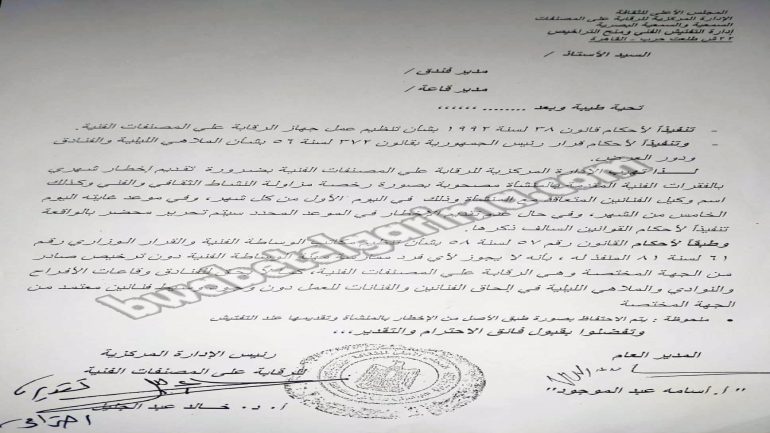 المجلس الأعلى للثقافة
الإدارة المركزية للرقابة على المصنفات
السمعية والسمعية البصرية
إدارة التفتيش الفني ومنح التراخيص
٢٢ش طلعت حرب - القاهرة
السيد الأستاذ /
مدير فندق /
مدير قاعة /
تحية طيبة وبعد ........ ،،،،،،
- تنفيذاً لأحكام قانون ٣٨ لسنة ١٩٩٢ بشأن تنظيم عمل جهاز الرقابة علي المصنفات الفنية.
- وتنفيذاً لأحكام قرار رئيس الجمهورية بقانون ٣٧٢ لسنة ٥٦ بشأن الملاهي الليلية والفنادق
ودور العرض.
لذا الإدارة المركزية للرقابة علي المصنفات الفنية بضرورة تقديم إخطار شهري
بالفقرات الفنية بالمنشأة مصحوبة بصورة رخصة مزاولة النشاط الثقافي والفني وكذلك
اسم وكيل الفنانين المتعاقد المنشأة وذلك في اليوم الأول من كل شهر، وفي موعد غايته اليوم
الخامس من الشهر، وفي حال الإخطار في الموعد المحدد سيتم تحرير محضر بالواقعة
تنفيذاً لأحكام القوانين السالف ذكرها.
وطبقاً لأحكام القانون رقم ٥٧ لسنة ٥٨ بشأن الوساطة الفنية والقرار الوزاري رقم
٦١ لسنة ٨١ المنفذ له، بأنه لا يجوز لأي فرد الوساطة الفنية دون ترخيص صادر
من الجهة المختصة وهي الرقابة علي المصنفات الفنية، الفنادق وقاعات الأفراح
والنوادي والملاهي الليلية في إلحاق الفنانين والفنانات للعمل دون فنانين معتمد من
الجهة المختصة
• ملحوظة : يتم الاحتفاظ بصورة طبق الأصل من الإخطار بالمنشأة وتقديمها عند التفتيش
وتفضلوا بقبول فائق الاحترام والتقدير...
المدير العام
رئيس الإدارة المركزية
للرقابة على المصنفات الفنية
"أ. أسامه عبد الموجود"
أ.د. خالد عبد الجليل
bwabetelgarima.com